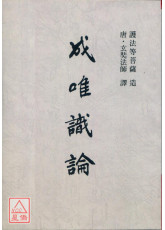 護法等菩薩 造
唐‧玄奘法師 譯
成唯識論